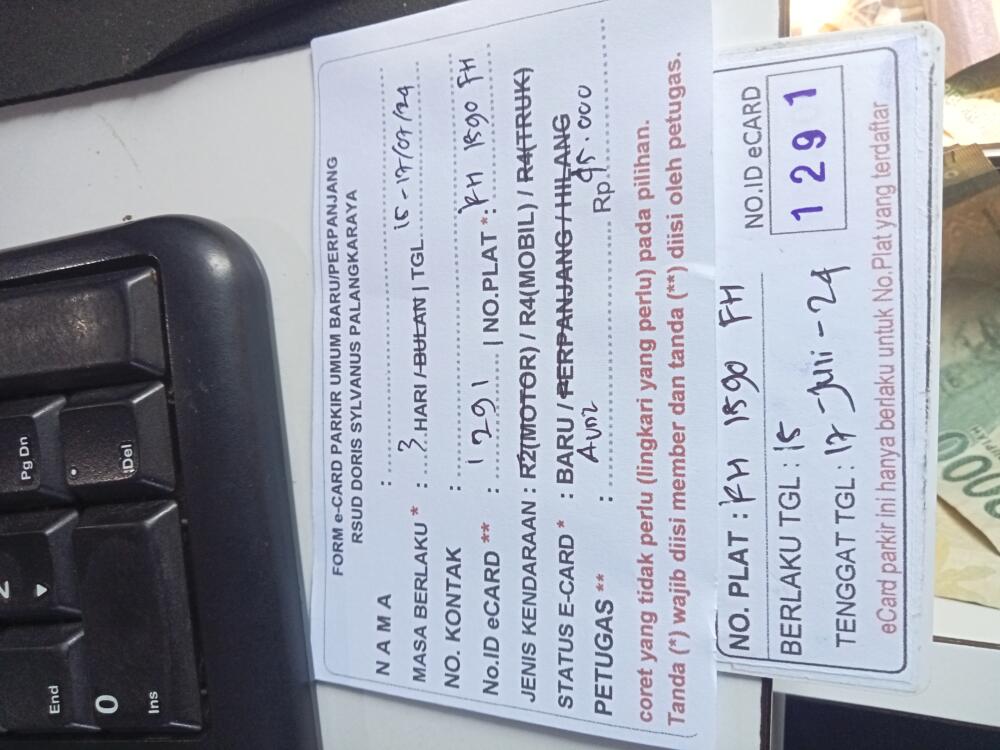 FORM e-CARD PARKIR UMUM BARU/PERPANJANG
RSUD DORIS SYLVANUS PALANGKARAYA
N A M A :
MASA BERLAKU * : 3 HARI / BULAN | TGL 15-17/07/24
NO. KONTAK :
No.ID eCARD ** : 1291 | NO.PLAT *: KH 1590 FH
JENIS KENDARAAN : R2(MOTOR) / R4(MOBIL) / R4(TRUK)
STATUS E-CARD * : BARU / PERPANJANG / HILANG
PETUGAS ** : Rp 95.000
coret yang tidak perlu (lingkari yang perlu) pada pilihan.
Tanda (*) wajib diisi member dan tanda (**) diisi oleh petugas.
NO. PLAT : KH 1590 FH
NO.ID eCARD
1291
BERLAKU TGL : 15
TENGGAT TGL : 17-Juli-24
eCard parkir ini hanya berlaku untuk No.Plat yang terdaftar
Pg Dn
.
Del
End
0
Ins